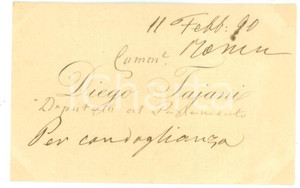 11 Febb. 90
Roma
Comm.
Diego Tajani
Deputato al Parlamento
Per condoglianza